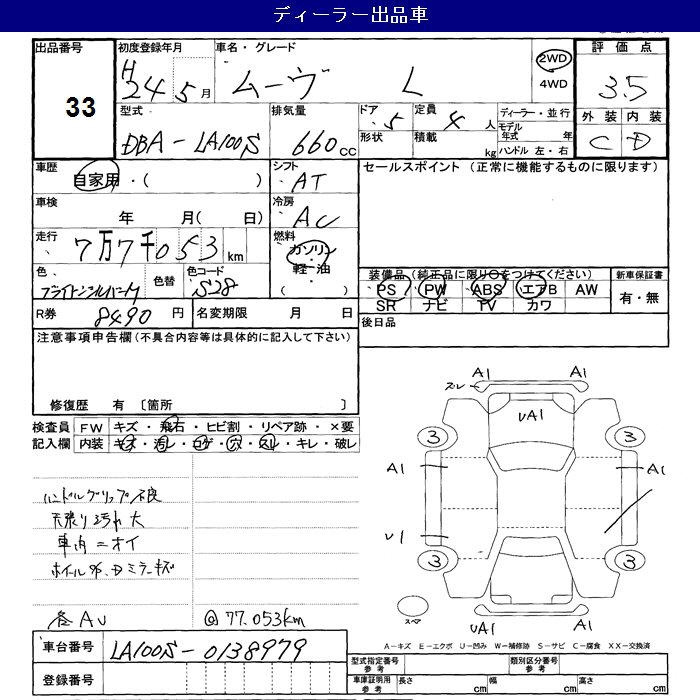 ディーラー出品車
出品番号 初度登録年月 車名・グレード 2WD 評価点
33 H24 5月 ムーヴ L 4WD 3.5
型式 排気量 ドア 5 定員 4人 ディーラー・並行 外装 内装
DBA-LA100S 660cc 形状 積載 kg モデル年式 年 C D
ハンドル 左・右
車歴 シフト セールスポイント (正常に機能するものに限ります)
自家用・( ) AT
車検 冷房
年 月( 日) AC
走行 燃料
7万7千053km ガソリン
軽・油
( )
色 色替 色コード 装備品(純正品に限り○をつけてください) 新車保証書
ブライトシルバーM S28 PS PW ABS エアB AW 有・無
SR ナビ TV カワ
R券 8490円 名変期限 月 日 後日品
注意事項申告欄(不具合内容等は具体的に記入して下さい)
修復歴 有 〔箇所 〕
検査員 FW キズ・飛石・ヒビ割・リペア跡・×要
記入欄 内装 キズ・汚レ・コゲ・穴・スレ・キレ・破レ
ハンドルグリップ不良
天張り汚れ大
車内ニオイ
ミラーキズ
各AU @77.053km
スレ A1 A1
UA1
3 3
A1 A1
U1
3 3
スペア UA1 A1
A-キズ E-エクボ U-凹み W-補修跡 S-サビ C-腐食 XX-交換済
車台番号 LA100S-0138979
登録番号
型式指定番号 参考 類別区分番号 参考
車庫証明用 参考 長さ cm 幅 cm 高さ cm